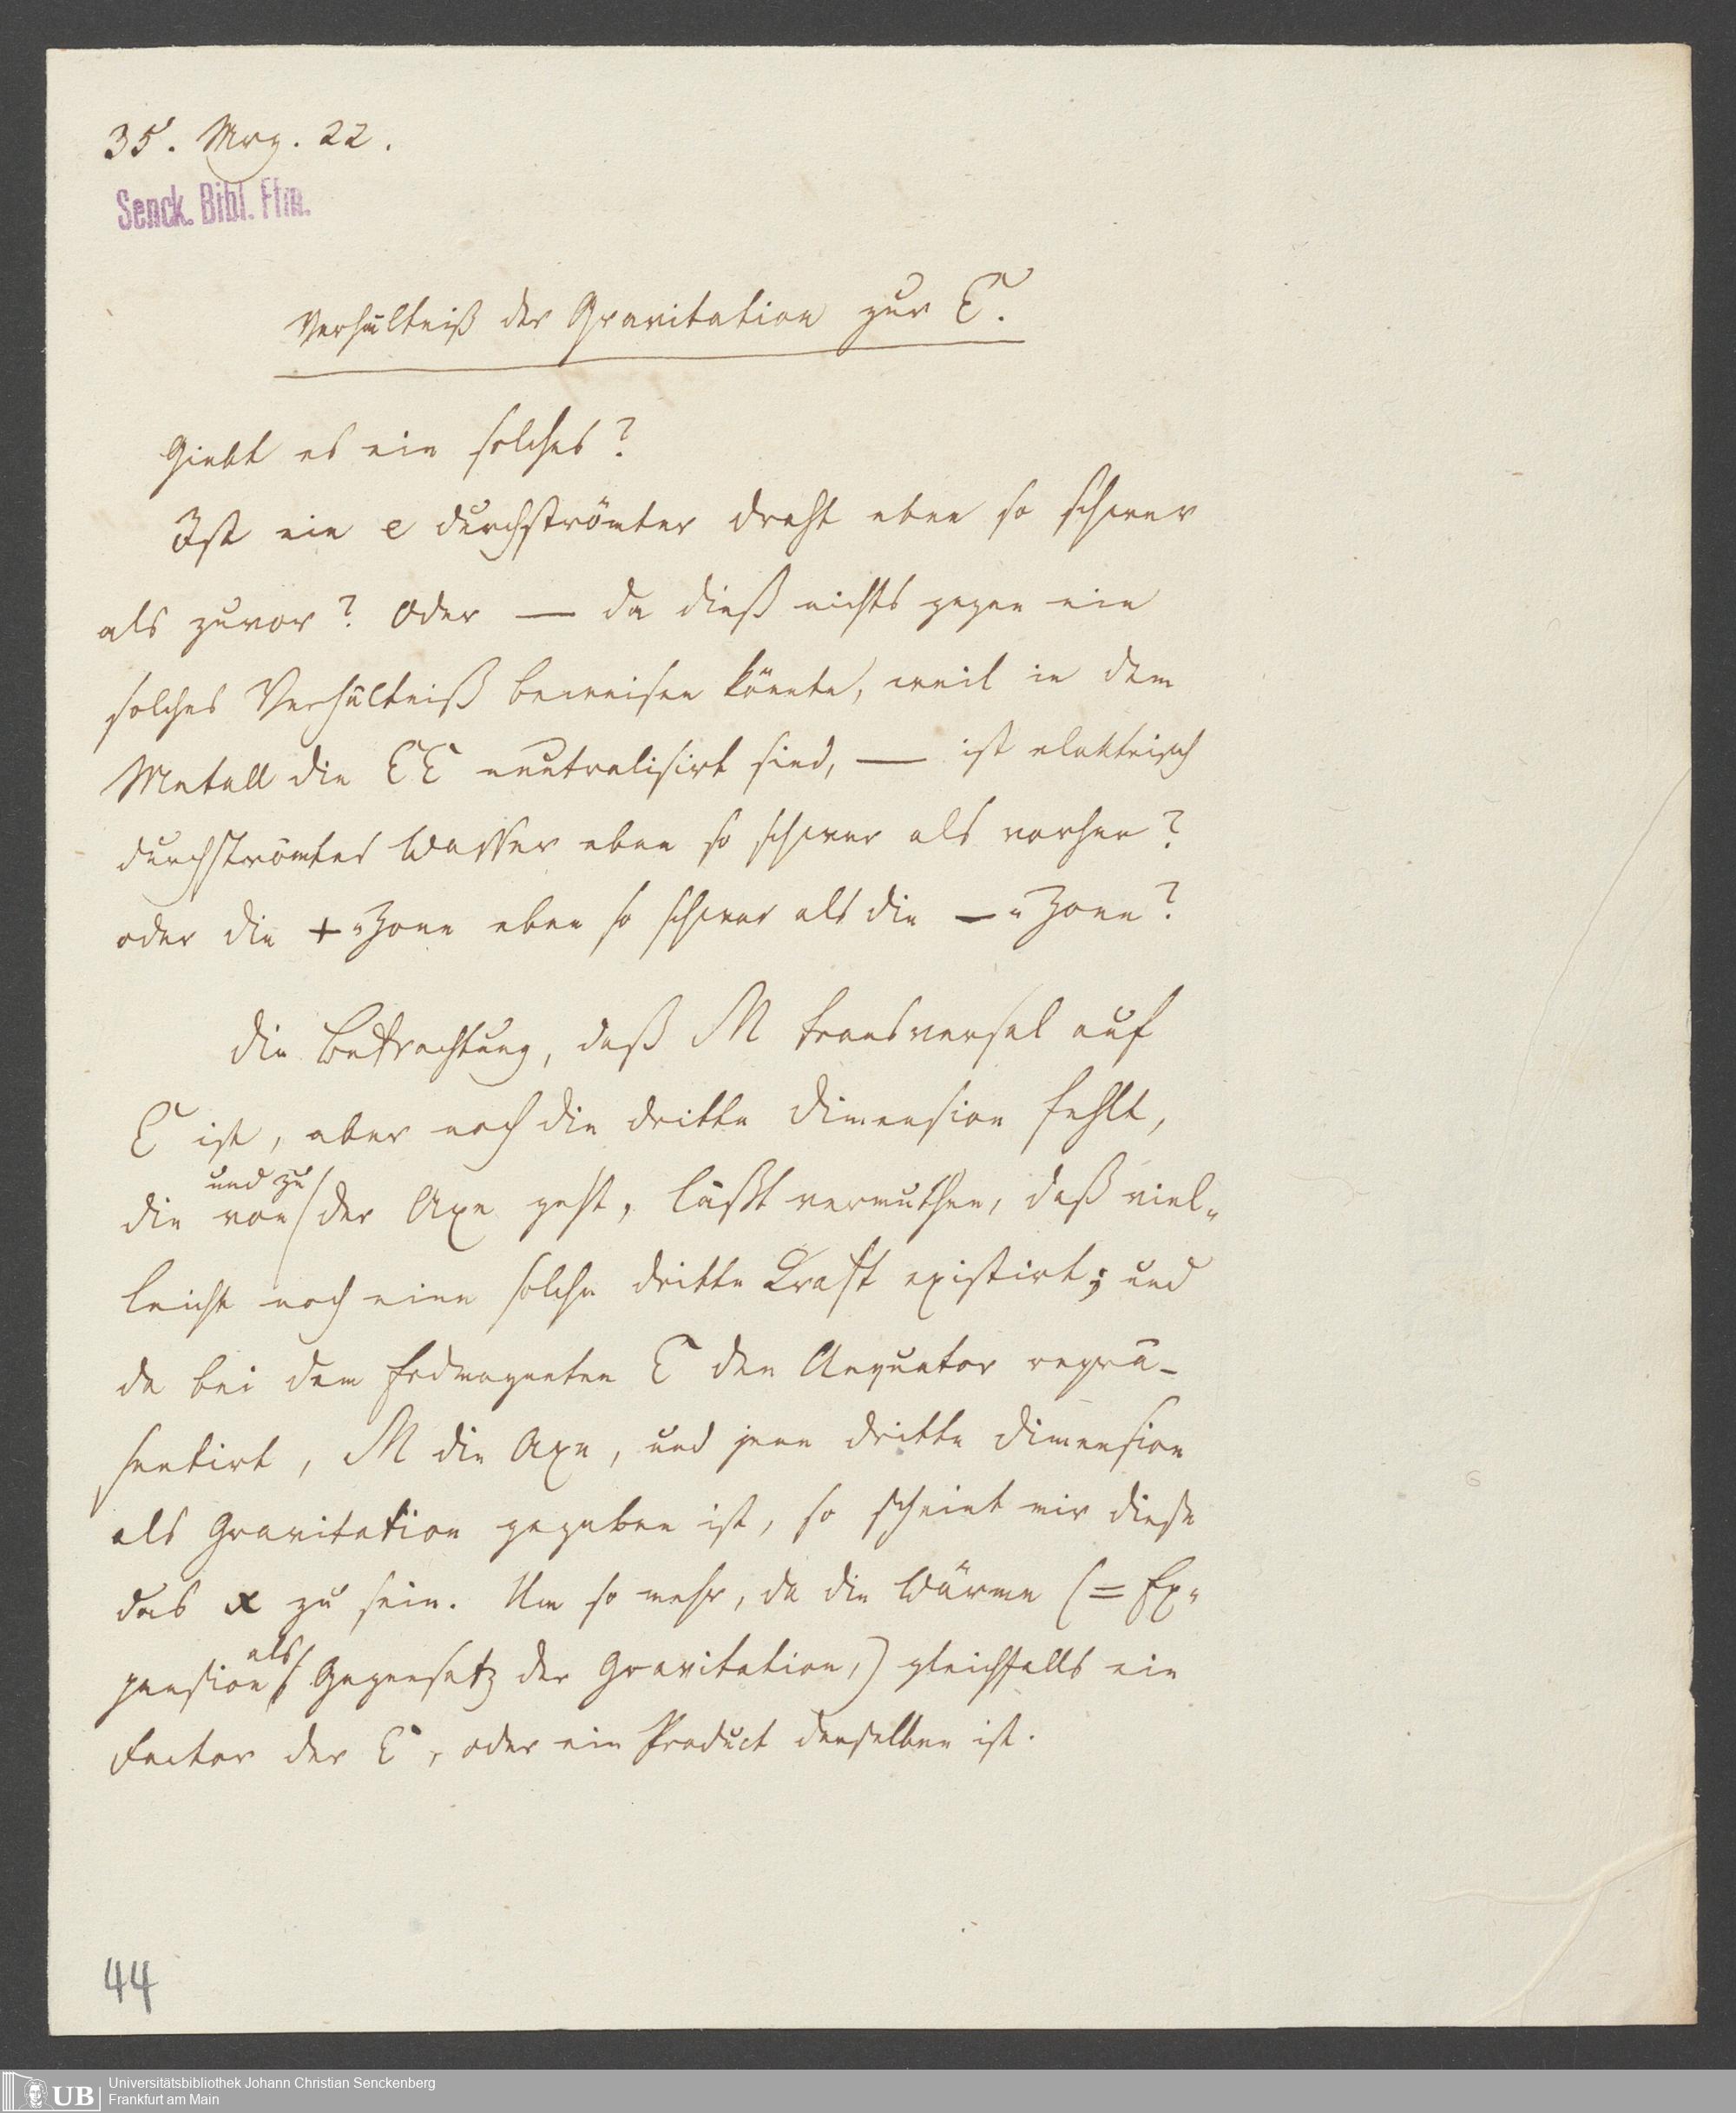 35. Mrz. 22.
Senck. Bibl. Ffm.
Verhältniß der Gravitation zur E.
Giebt es ein solches?
Ist ein e durchströmter Draht eben so schwer
als zuvor? Oder — da dieß nichts gegen ein
solches Verhältniß beweisen könnte, weil in dem
Metall die EE neutralisirt sind, — ist elektrisch
durchströmtes Wasser eben so schwer als vorher?
oder die +=Zone eben so schwer als die —=Zone?
Die Betrachtung, daß M transversal auf
E ist, aber noch die dritte Dimension fehlt,
und zu
die von der Axe geht, läßt vermuthen, daß viel=
leicht noch eine solche dritte Kraft existirt; und
da bei dem Erdmagneten E den Aequator reprä-
sentirt, M die Axe, und jene dritte Dimension
als Gravitation gegeben ist, so scheint mir diese
das x zu sein. Um so mehr, da die Wärme (= Ex=
pansion als Gegensatz der Gravitation,) gleichfalls ein
Factor der E, oder ein Product derselben ist.
44
UB
Universitätsbibliothek Johann Christian Senckenberg
Frankfurt am Main